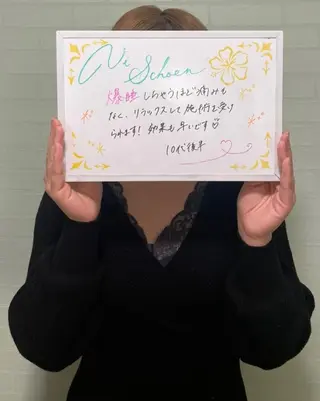 Ni Schoen
爆睡しちゃうほど痛みも
なく、リラックスして施術を受け
られます！効果も早いです
10代後半